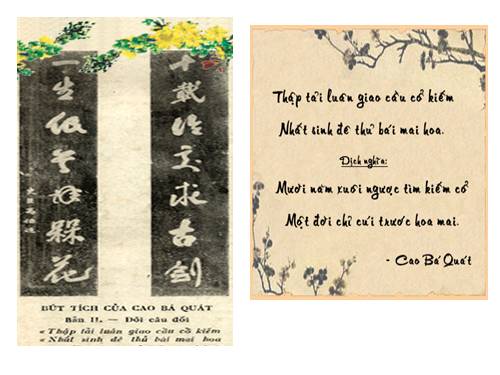 十載論交求古劍
一生低首拜槑花
BÚT TÍCH CỦA CAO BÁ QUÁT
Bản II. — Đôi câu đối
«Thập tải luân giao cầu cổ kiếm
«Nhất sinh đê thủ bái mai hoa
Thập tải luân giao cầu cổ kiếm
Nhất sinh đê thủ bái mai hoa.
Dịch nghĩa:
Mười năm xuôi ngược tìm kiếm cổ
Một đời chỉ cúi trước hoa mai.
- Cao Bá Quát